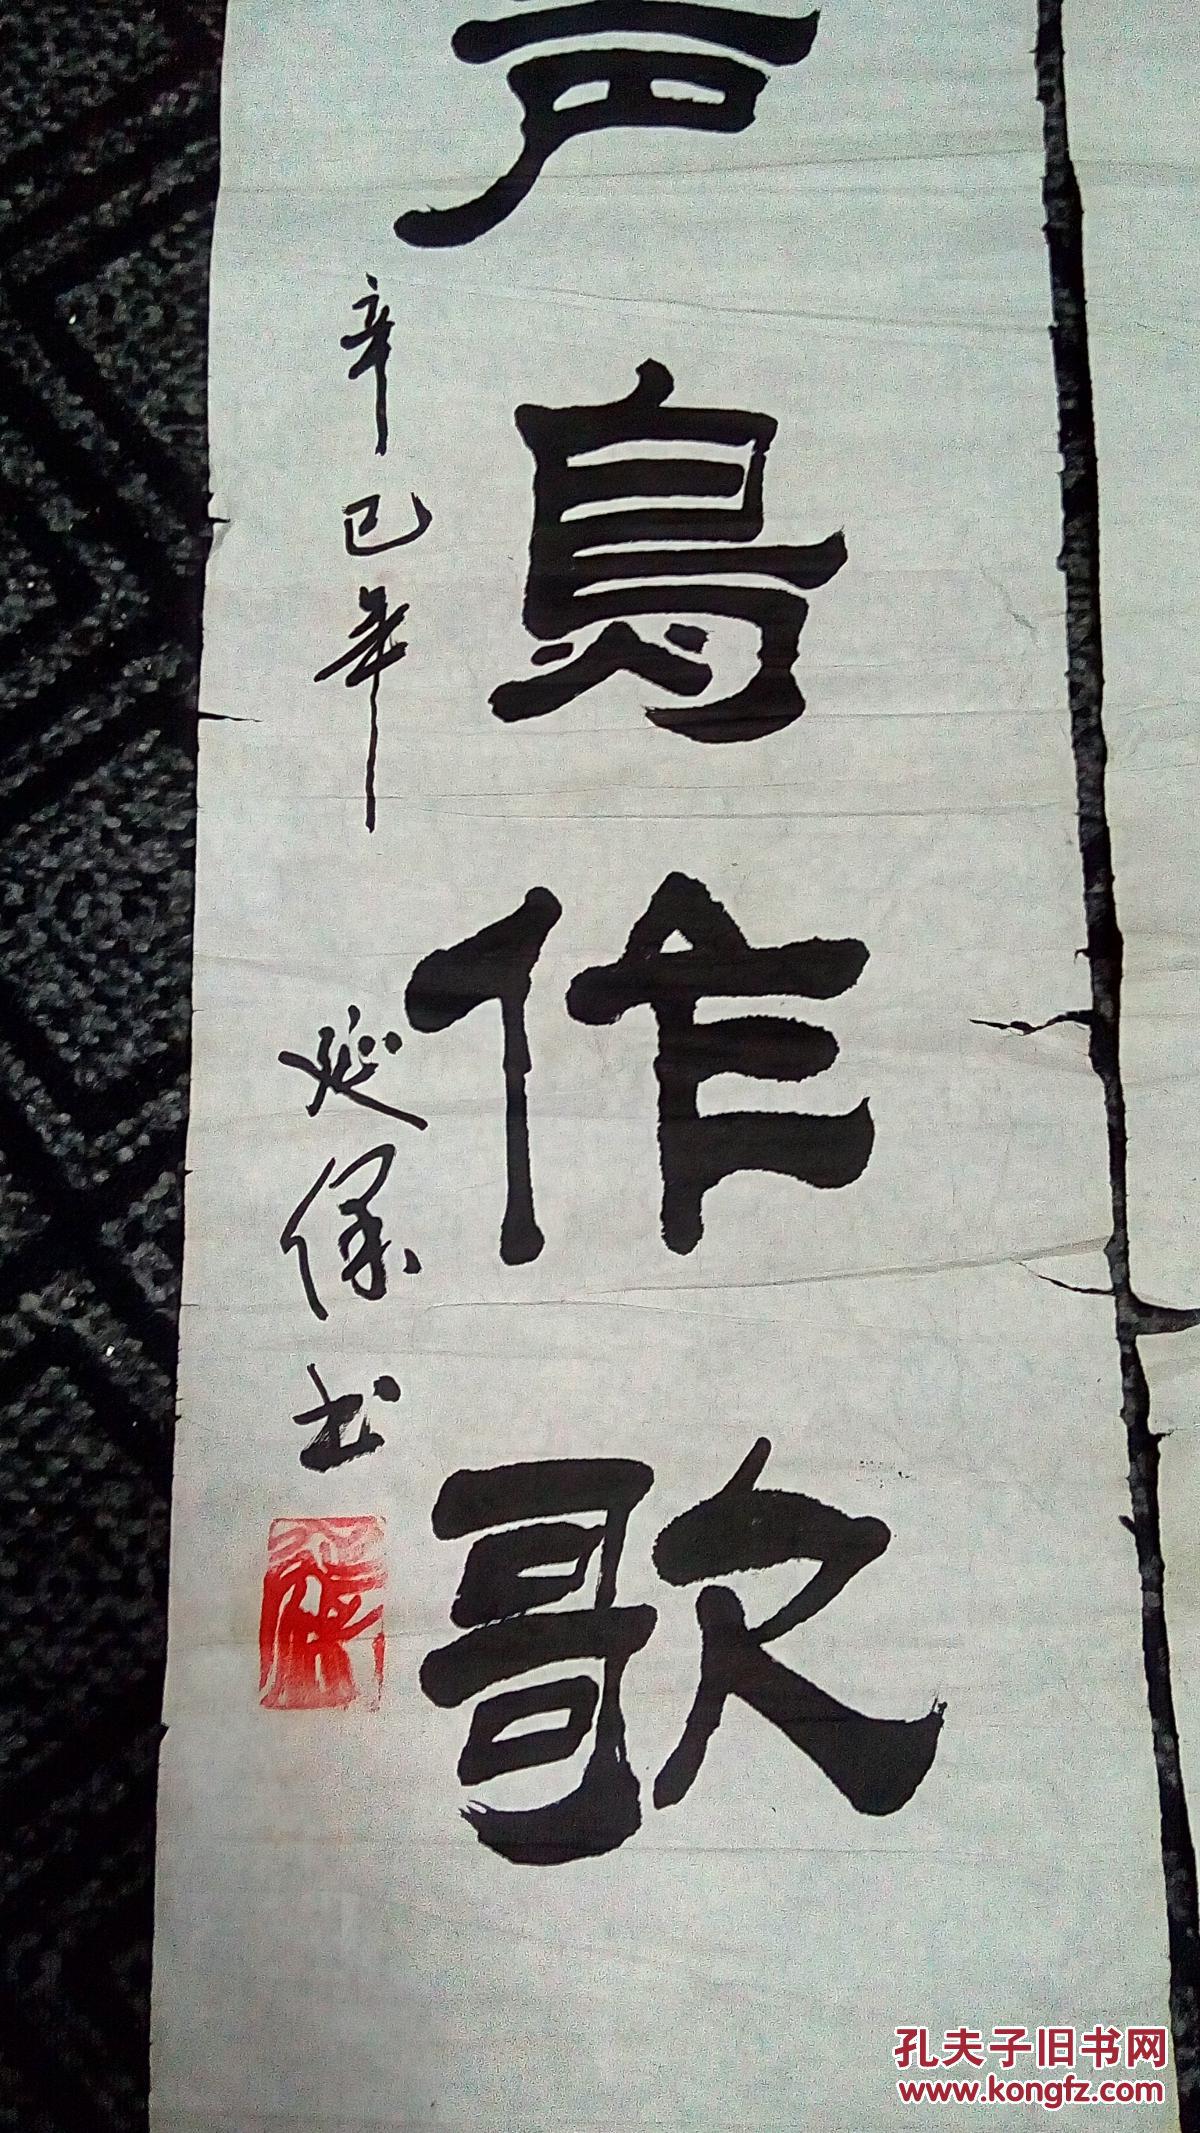 声鳥作歌
辛巳年
延保书
孔夫子旧书网
www.kongfz.com